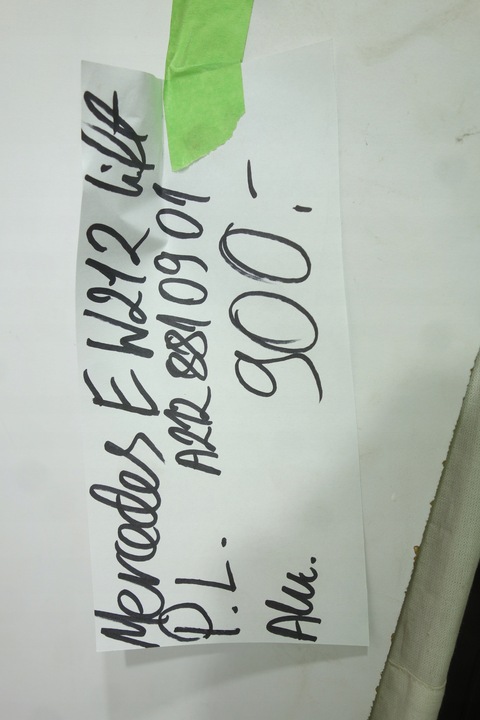 Mercedes E W212 lift
P.L. A212 881 09 01
Alu. 900.-